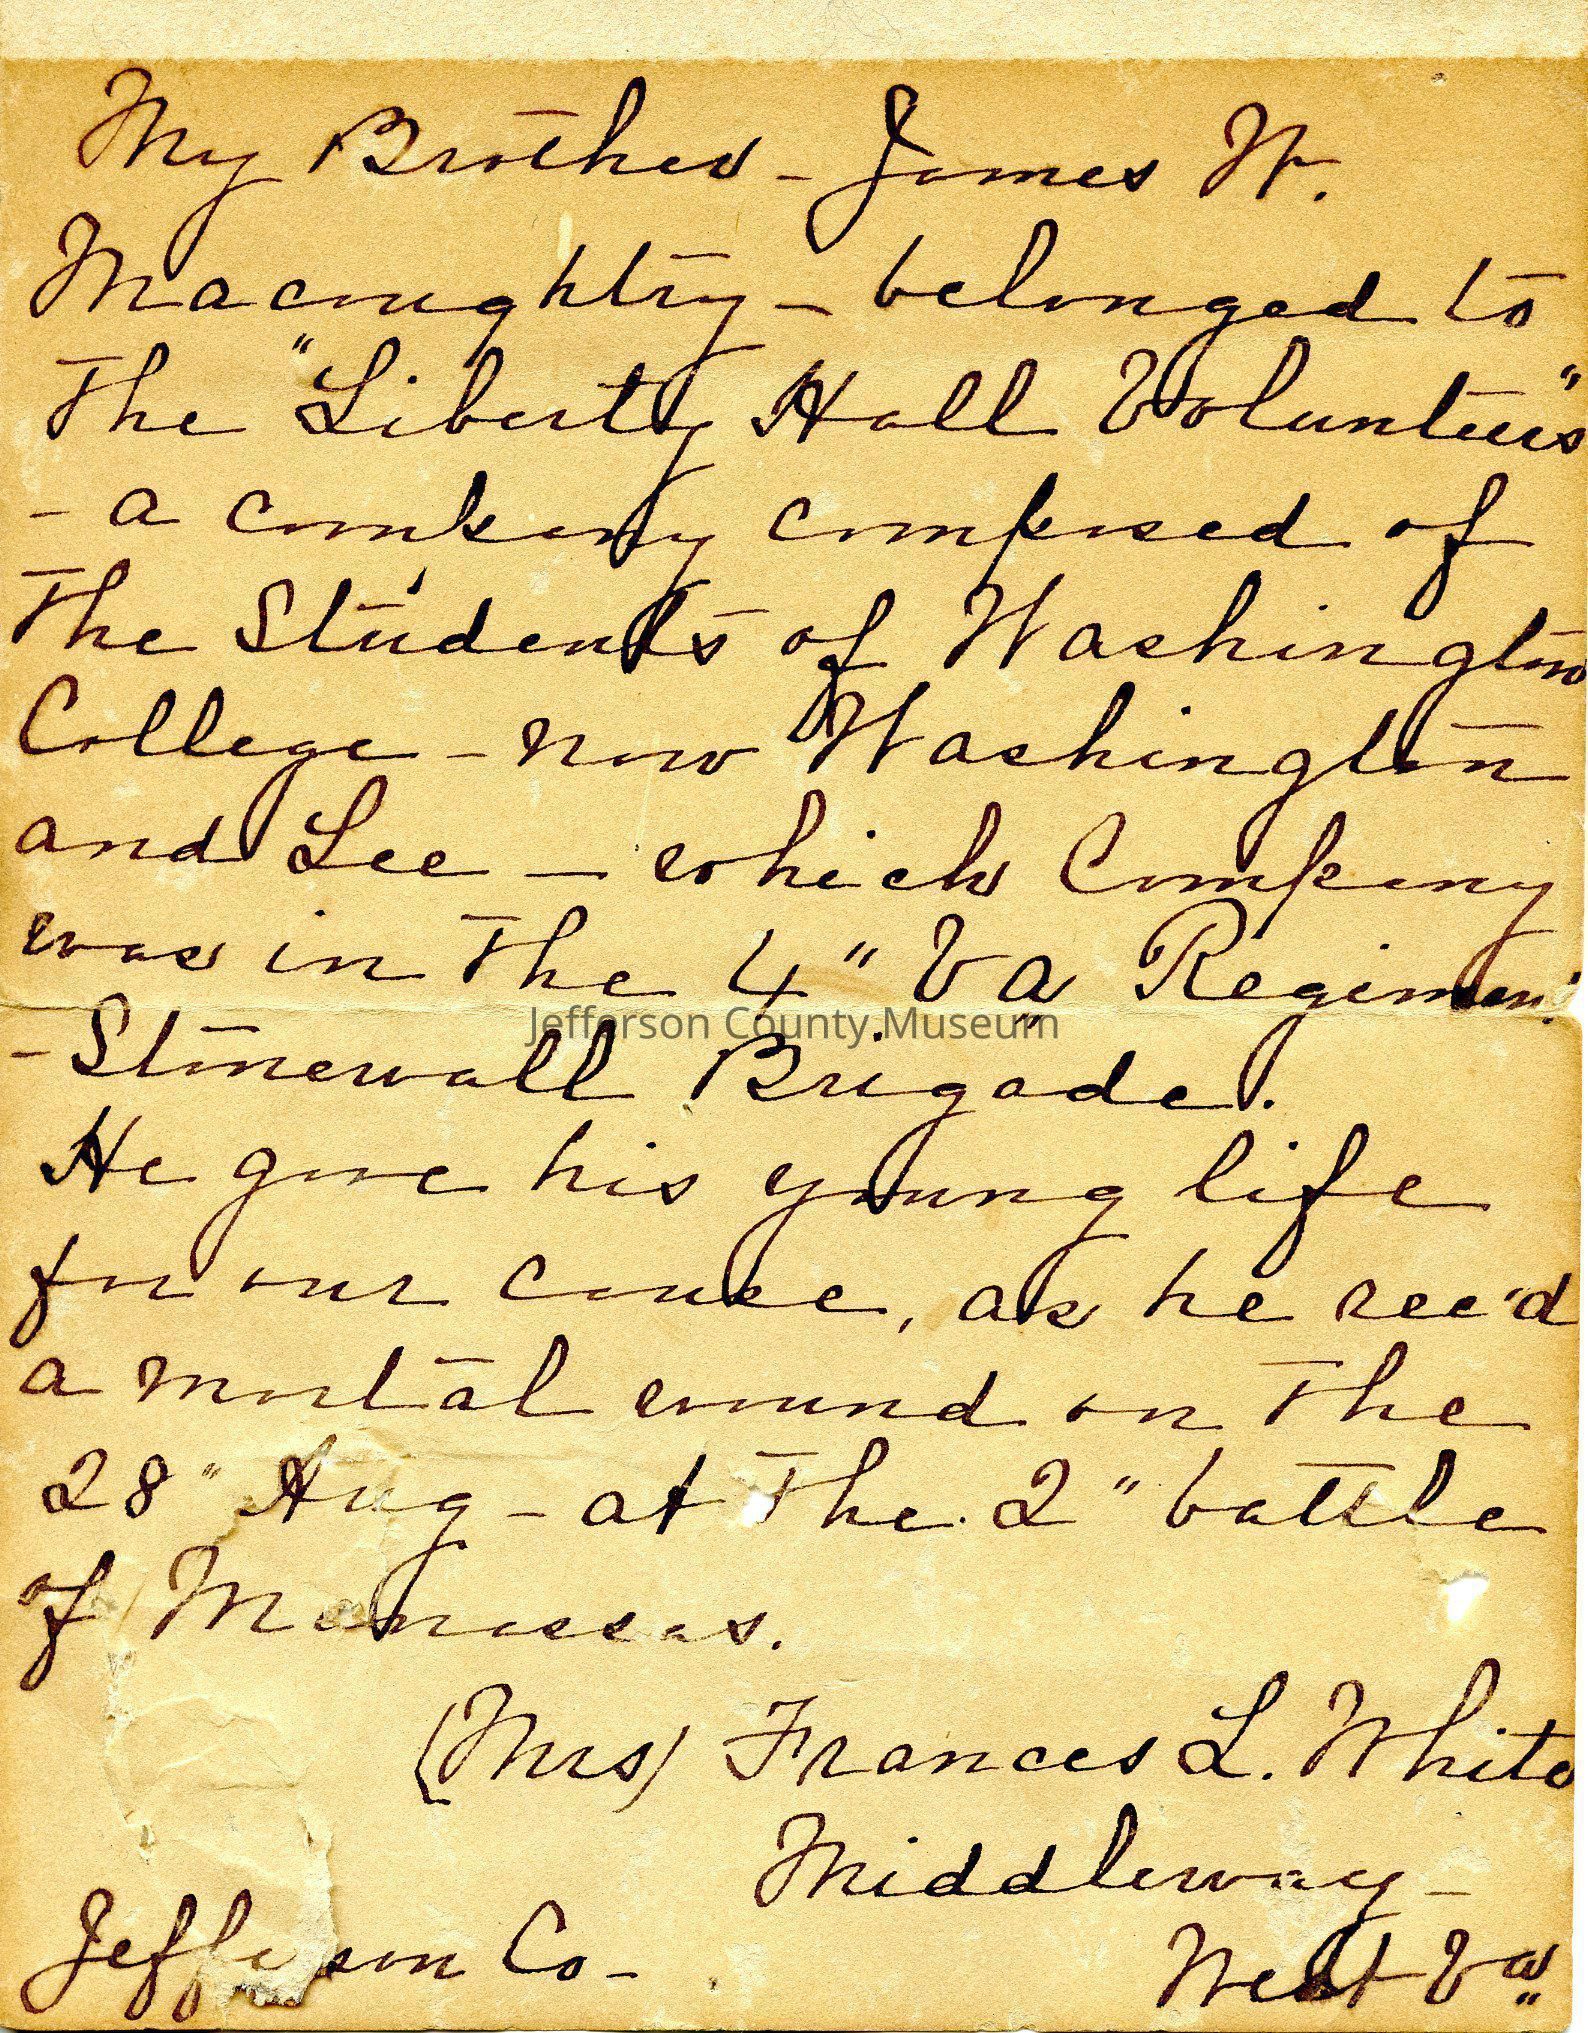 My Brother - James W.
Macoughtry - belonged to
the "Liberty Hall Volunteers"
- a company composed of
the Students of Washington
College - now Washington
and Lee - which Company
was in the 4" Va Regiment
Jefferson County Museum
- Stonewall Brigade.
He gave his young life
for our cause, as he rec'd
a mortal wound on the
28" Aug - at the 2" battle
of Manassas.
(Mrs) Frances L. White
Middleway -
Jefferson Co - West Va